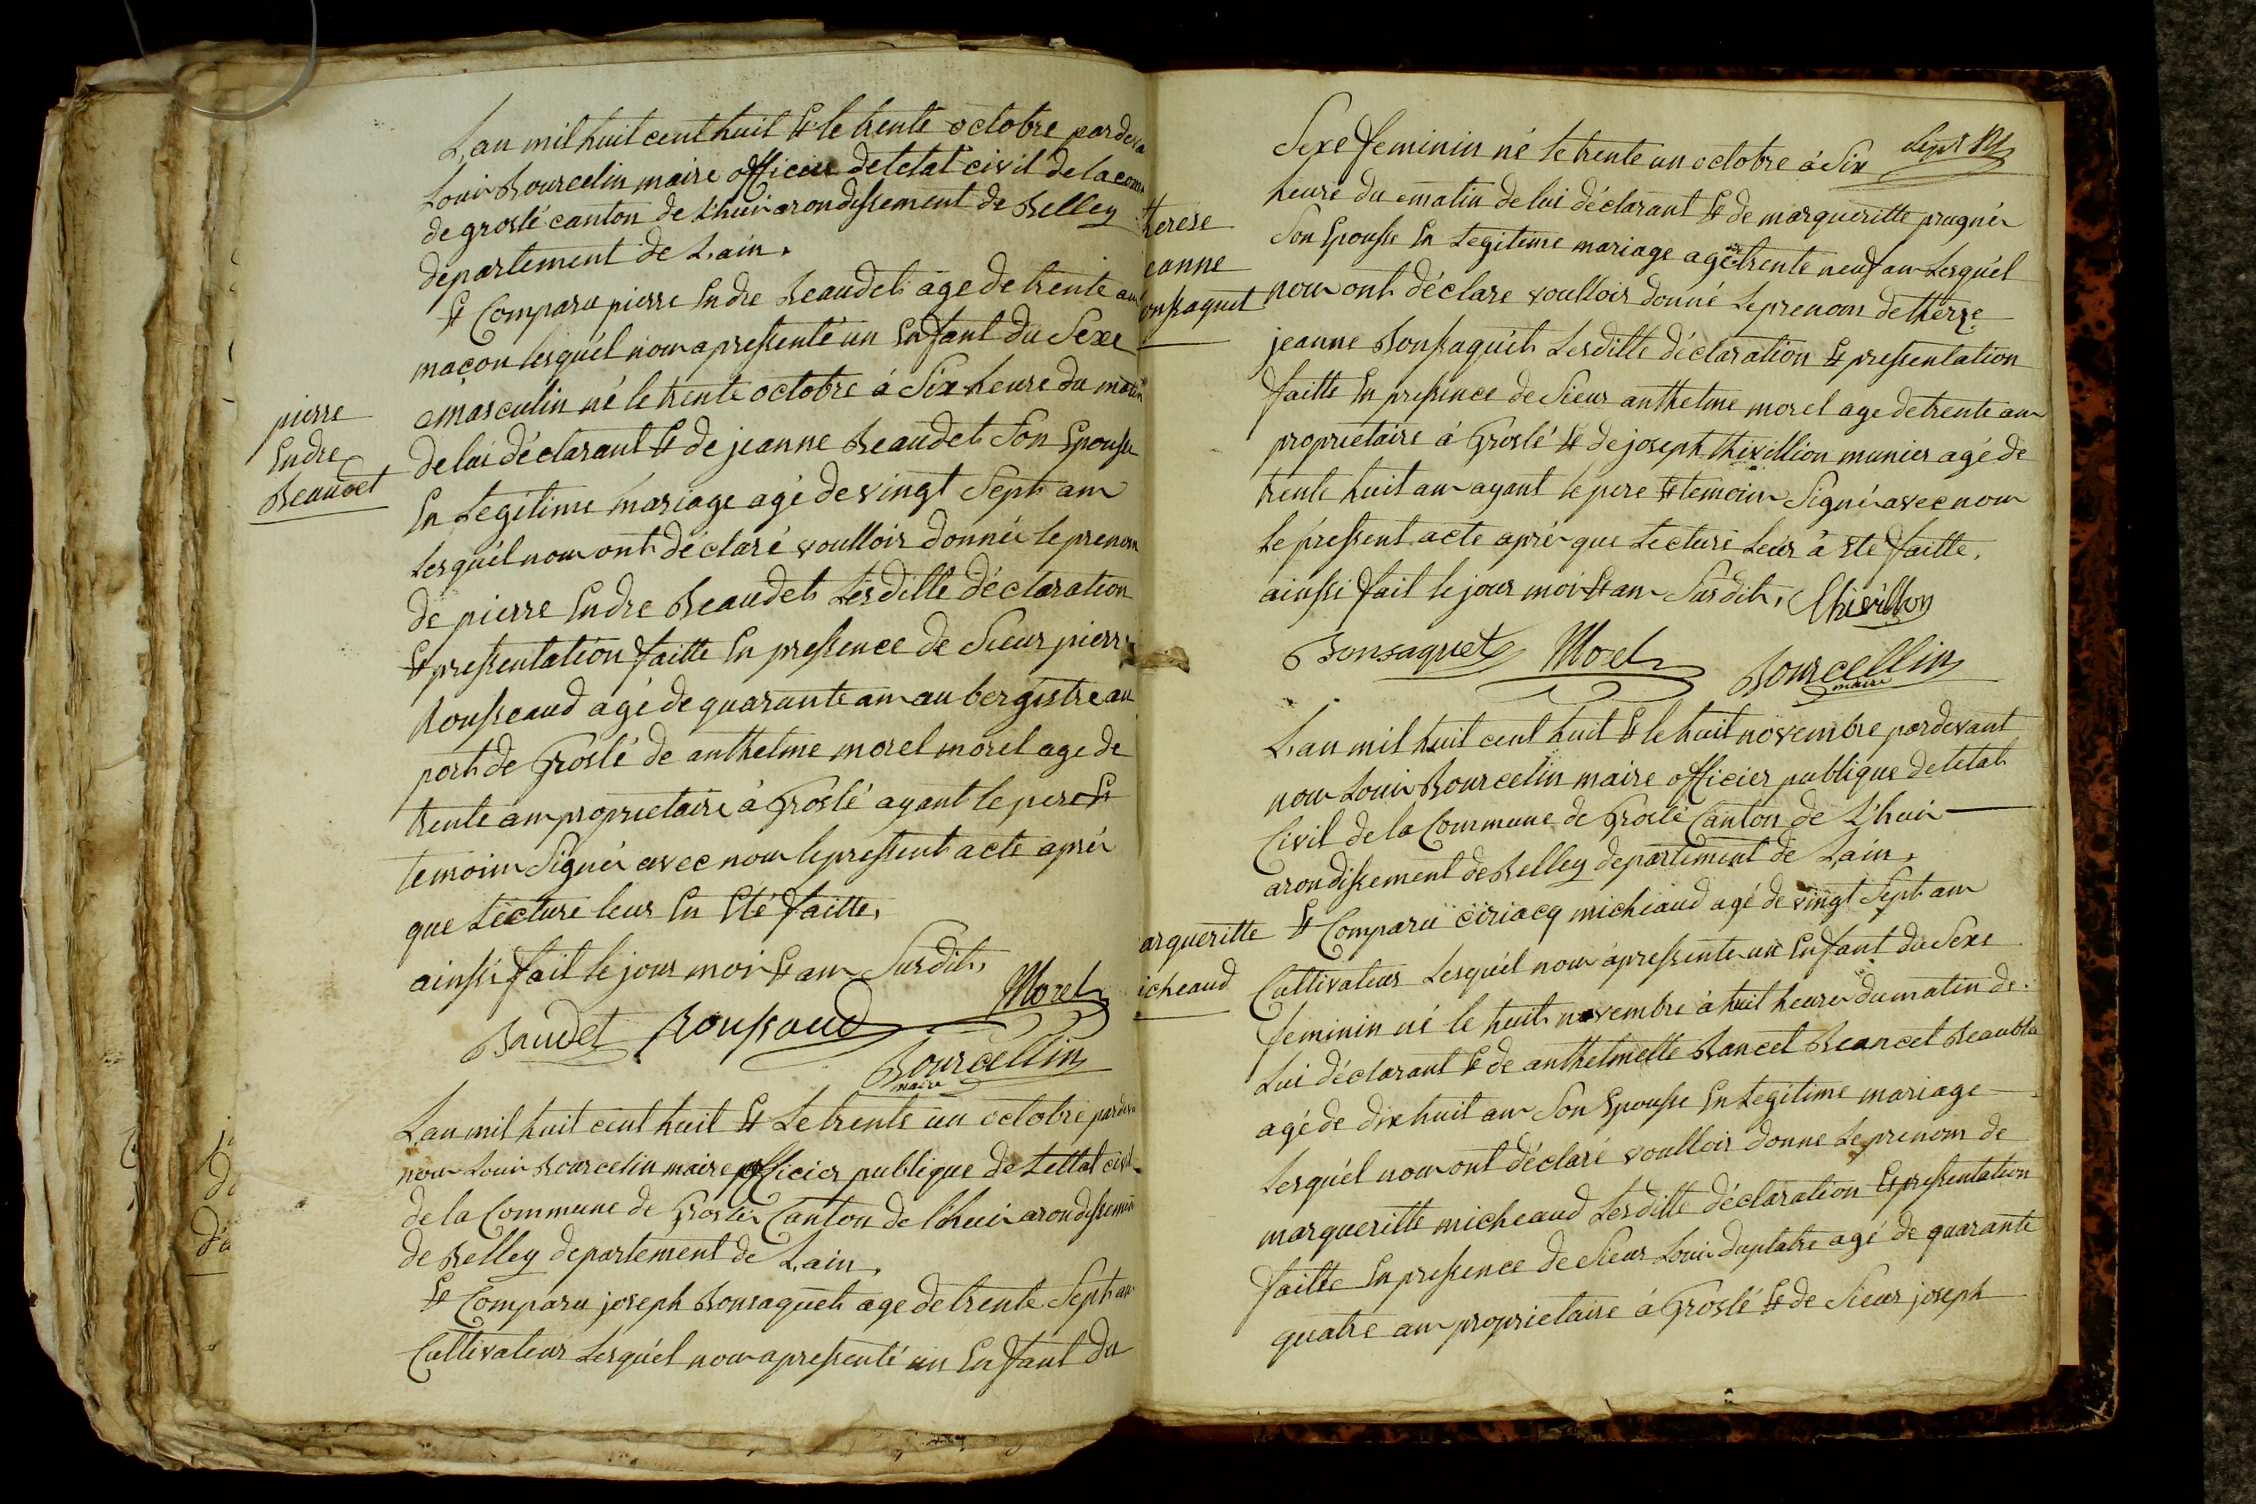 L'an mil huit cent huit Et le trente octobre par deva
Louis Bourcelin maire officier de letat civil de la com
de groslé canton de Lhuis arondissement de Belley
département de L'ain.
Et Comparu pierre Endre Beaudet age de trente ans
maçon lesquél nous a pressenté un Enfant du Sexe
masculin né le trente octobre á Six heure du matin
de lui déclarant Et de jeanne Beaudet Son Epousse
En Legitime mariage agé de vingt Sept ans
Lesquél nous ont déclaré voulloir donnér le prenom
de pierre Endre Beaudet Lesditte déclaration
Et pressentation faitte En pressence de Sieur pierre
Rousseaud agé de quarante ans aubergistre au
port de Groslé de anthelme morel morel age de
trente ans proprietaire á Groslé ayant le pere Et
temoins Signér avec nous le pressent acte aprés
que Lecture leur En Eté faitte,
ainssi fait le jour mois Et ans Susdit,
pierre
Endre
Beaudet
Baudet Roussaud Morel
Bourcellin
maire
L'an mil huit cent huit Et Le trente un octobre par deva
nous Louis Bourcelin maire officier publique de Lettat civil
de la Commune de Groslér Canton de l'huis arondissemen
de Belley departement de L'ain,
Et Comparu joseph Bonsaquet age de trente Sept ans
Cultivateur Lesquél nous a pressenté un Enfant du
Sept
Sexe feminin né le trente un octobre á Six
heure du matin de lui déclarant Et de margueritte prugnér
Son Epousse En Legitime mariage agé de trente neuf ans Lesquél
nous ont déclare voulloir donné le prenom de therze
jeanne Bonsaquét Lesditte déclaration Et pressentation
faitte En pressence de Sieur anthelme morel age de trente ans
proprietaire á Groslé Et de joseph thivillion munier agé de
trente huit ans ayant le pere Et temoins Signér avec nous
le pressent acte aprér que Lecture Leur á Eté faitte,
ainssi fait le jour mois Et ans Susdit, Thivillon
herese
eanne
onsaquet
Bonsaquet Morel Bourcellin
maire
L'an mil huit cent huit Et le huit novembre par devant
nous Louis Bourcelin maire officier publique de letat
Civil de la Commune de Groslé Canton de L'huis
arondissement de Belley departement de L'ain,
Et Comparu ciriacq micheaud agé de vingt Sept ans
Cultivateur Lesquél nous á pressente un Enfant du Sexe
feminin né le huit novembre á huit heures du matin de
Lui déclarant Et de anthelmette Bancet Beancet Beaubla
agé de dix huit ans Son Epousse En Legitime mariage
Lesquél nous ont déclaré voulloir donne Le prenom de
margueritte micheaud Lesditte déclaration Et pressentation
faitte En pressence de Sieur Louis duplatre agé de quarante
quatre ans proprietaire á Groslé Et de Sieur joseph
argueritte
icheaud